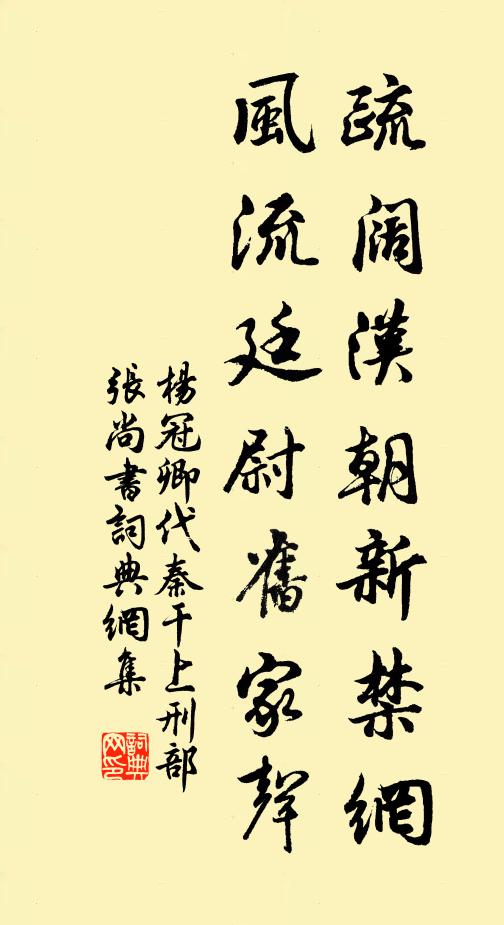 疏闊漢朝新禁網
風流廷尉舊家聲
楊冠卿代秦干上刑部
張尚書詞典網集
詞典
网印